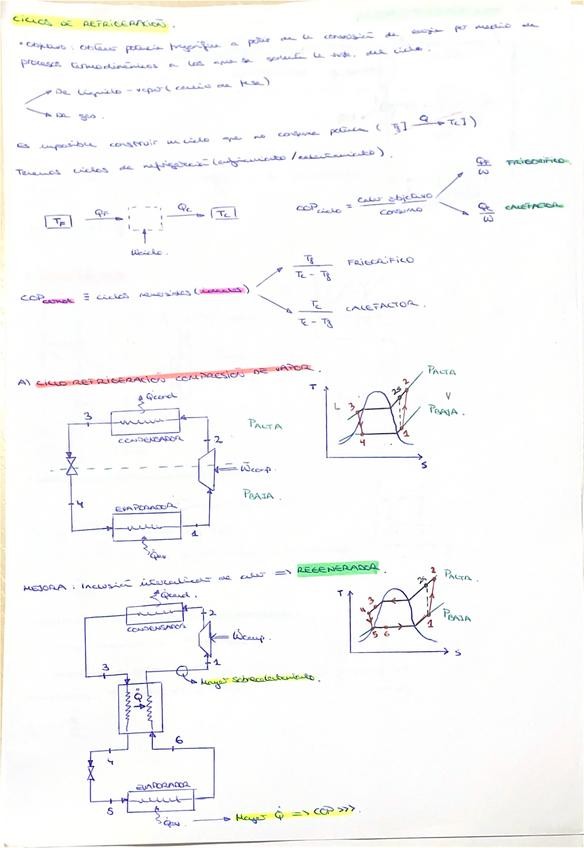 CICLOS DE REFRIGERACIÓN.
• Objetivo: Obtener potencia frigorífica a partir de la de energía por medio de
procesos termodinámicos a los que se someterá la del ciclo.
De líquido-vapor (cambio de fase)
De gas.
Es imposible construir un ciclo que no consuma potencia ( Tf] Q → Tc] )
Tenemos ciclos de refrigeración (enfriamiento / calentamiento).
COP ciclo = calor objetivo / consumo
QF / W FRIGORÍFICO
Qc / W CALEFACTOR
TF QF Qc Tc
Wciclo.
COP carnot ≡ ciclos reversibles ( )
Tf / Tc - Tf FRIGORÍFICO
Tc / Tc - Tf CALEFACTOR.
A) CICLO REFRIGERACIÓN COMPRESIÓN DE VAPOR.
Qcond.
3
CONDENSADOR
2
PALTA
Wcomp.
PBAJA.
4
EVAPORADOR
1
Qev
T
PALTA
V
PBAJA.
2s
2
3
L
4
1
S
MEJORA: Inclusión intercambiador de calor => REGENERADOR.
Qcond.
CONDENSADOR
2
Wcomp.
1
3
Mayor sobrecalentamiento.
Q
4
6
EVAPORADOR
5
Qev
Mayor Q => COP >>>.
T
PALTA.
PBAJA
2s
2
3
4
5
6
1
S